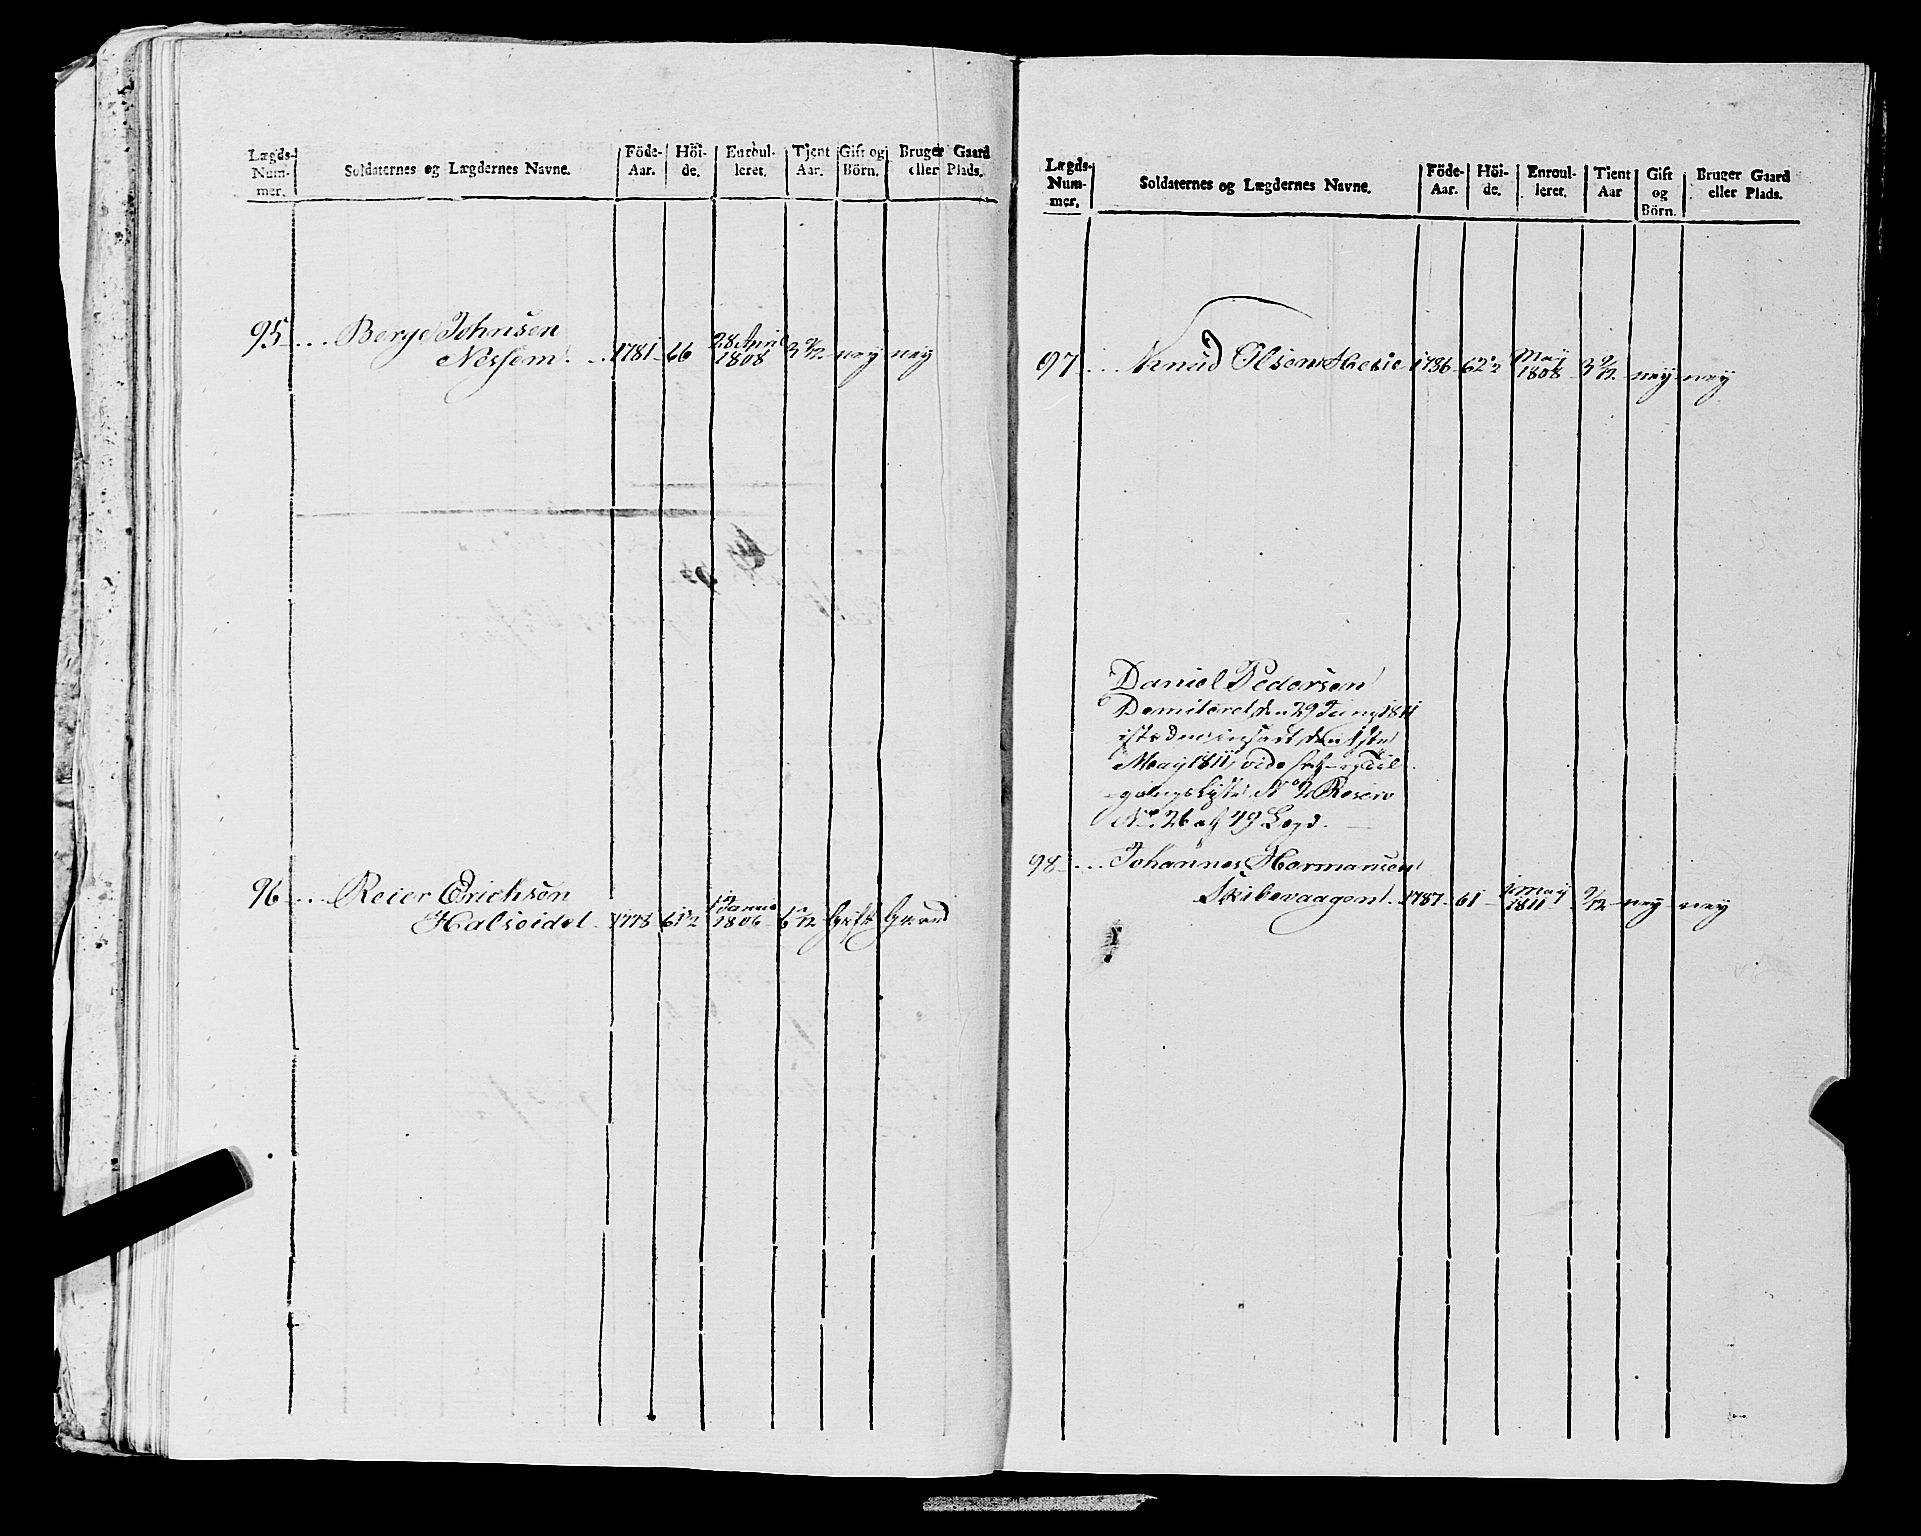 Lægds- Num- mer. Soldaternes og Lægdernes Navne. Föde- Aar. Höi- de. Enroul- leret. Tjent Aar. Gift og Börn. Bruger Gaard eller Plads.
95 Berge Johnsen
Nessem. 1781 66 28 April 1808 3 9/12 ney ney
96 Reier Erichsen
Halseidet 1778 61 1/2 1806 Gift Gaard
Lægds- Num- mer. Soldaternes og Lægdernes Navne. Föde- Aar. Höi- de. Enroul- leret. Tient Aar Gift og Börn. Bruger Gaard eller Plads.
97 Knud Olsen 1786 62 1/2 May 1808 3 9/12 ney ney
Daniel Pedersen
Demiteret den 29 Juny 1811
isteden insadt den 1ste
May 1811, vide Til-
gangs Liste No 2 Reserv
No. 26 af 49 Legd.
98 Johannes Hermansen
Skibevaagen 1787 61 1 May 1811 9/12 ney ney